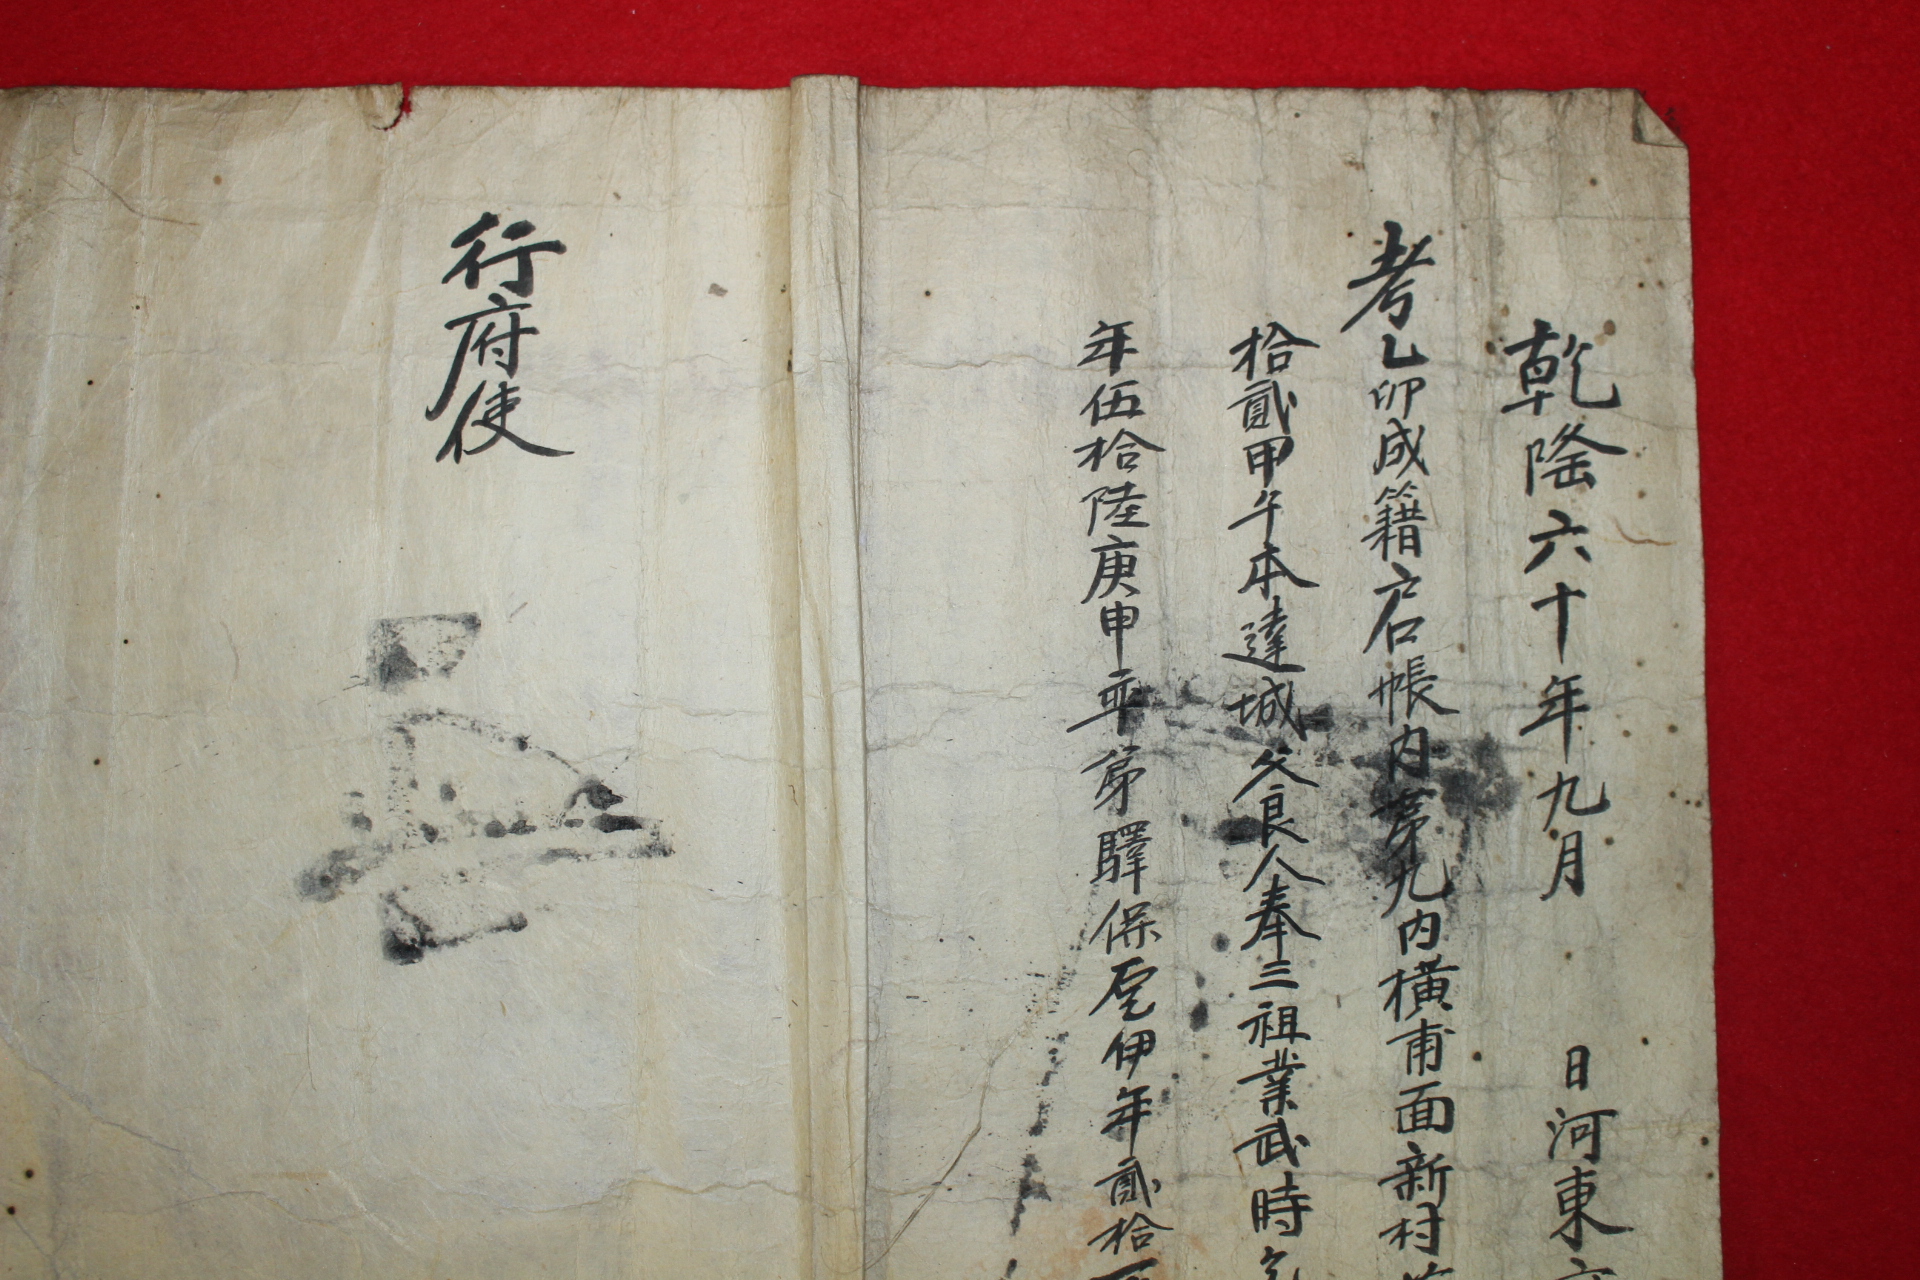 乾隆六十年九月　日河東
考乙卯成籍戶帳內第九內橫甫面新村
拾貳甲午本達城父良人奉三祖業武時
年伍拾陸庚申 第驛保 伊年貳拾
行府使